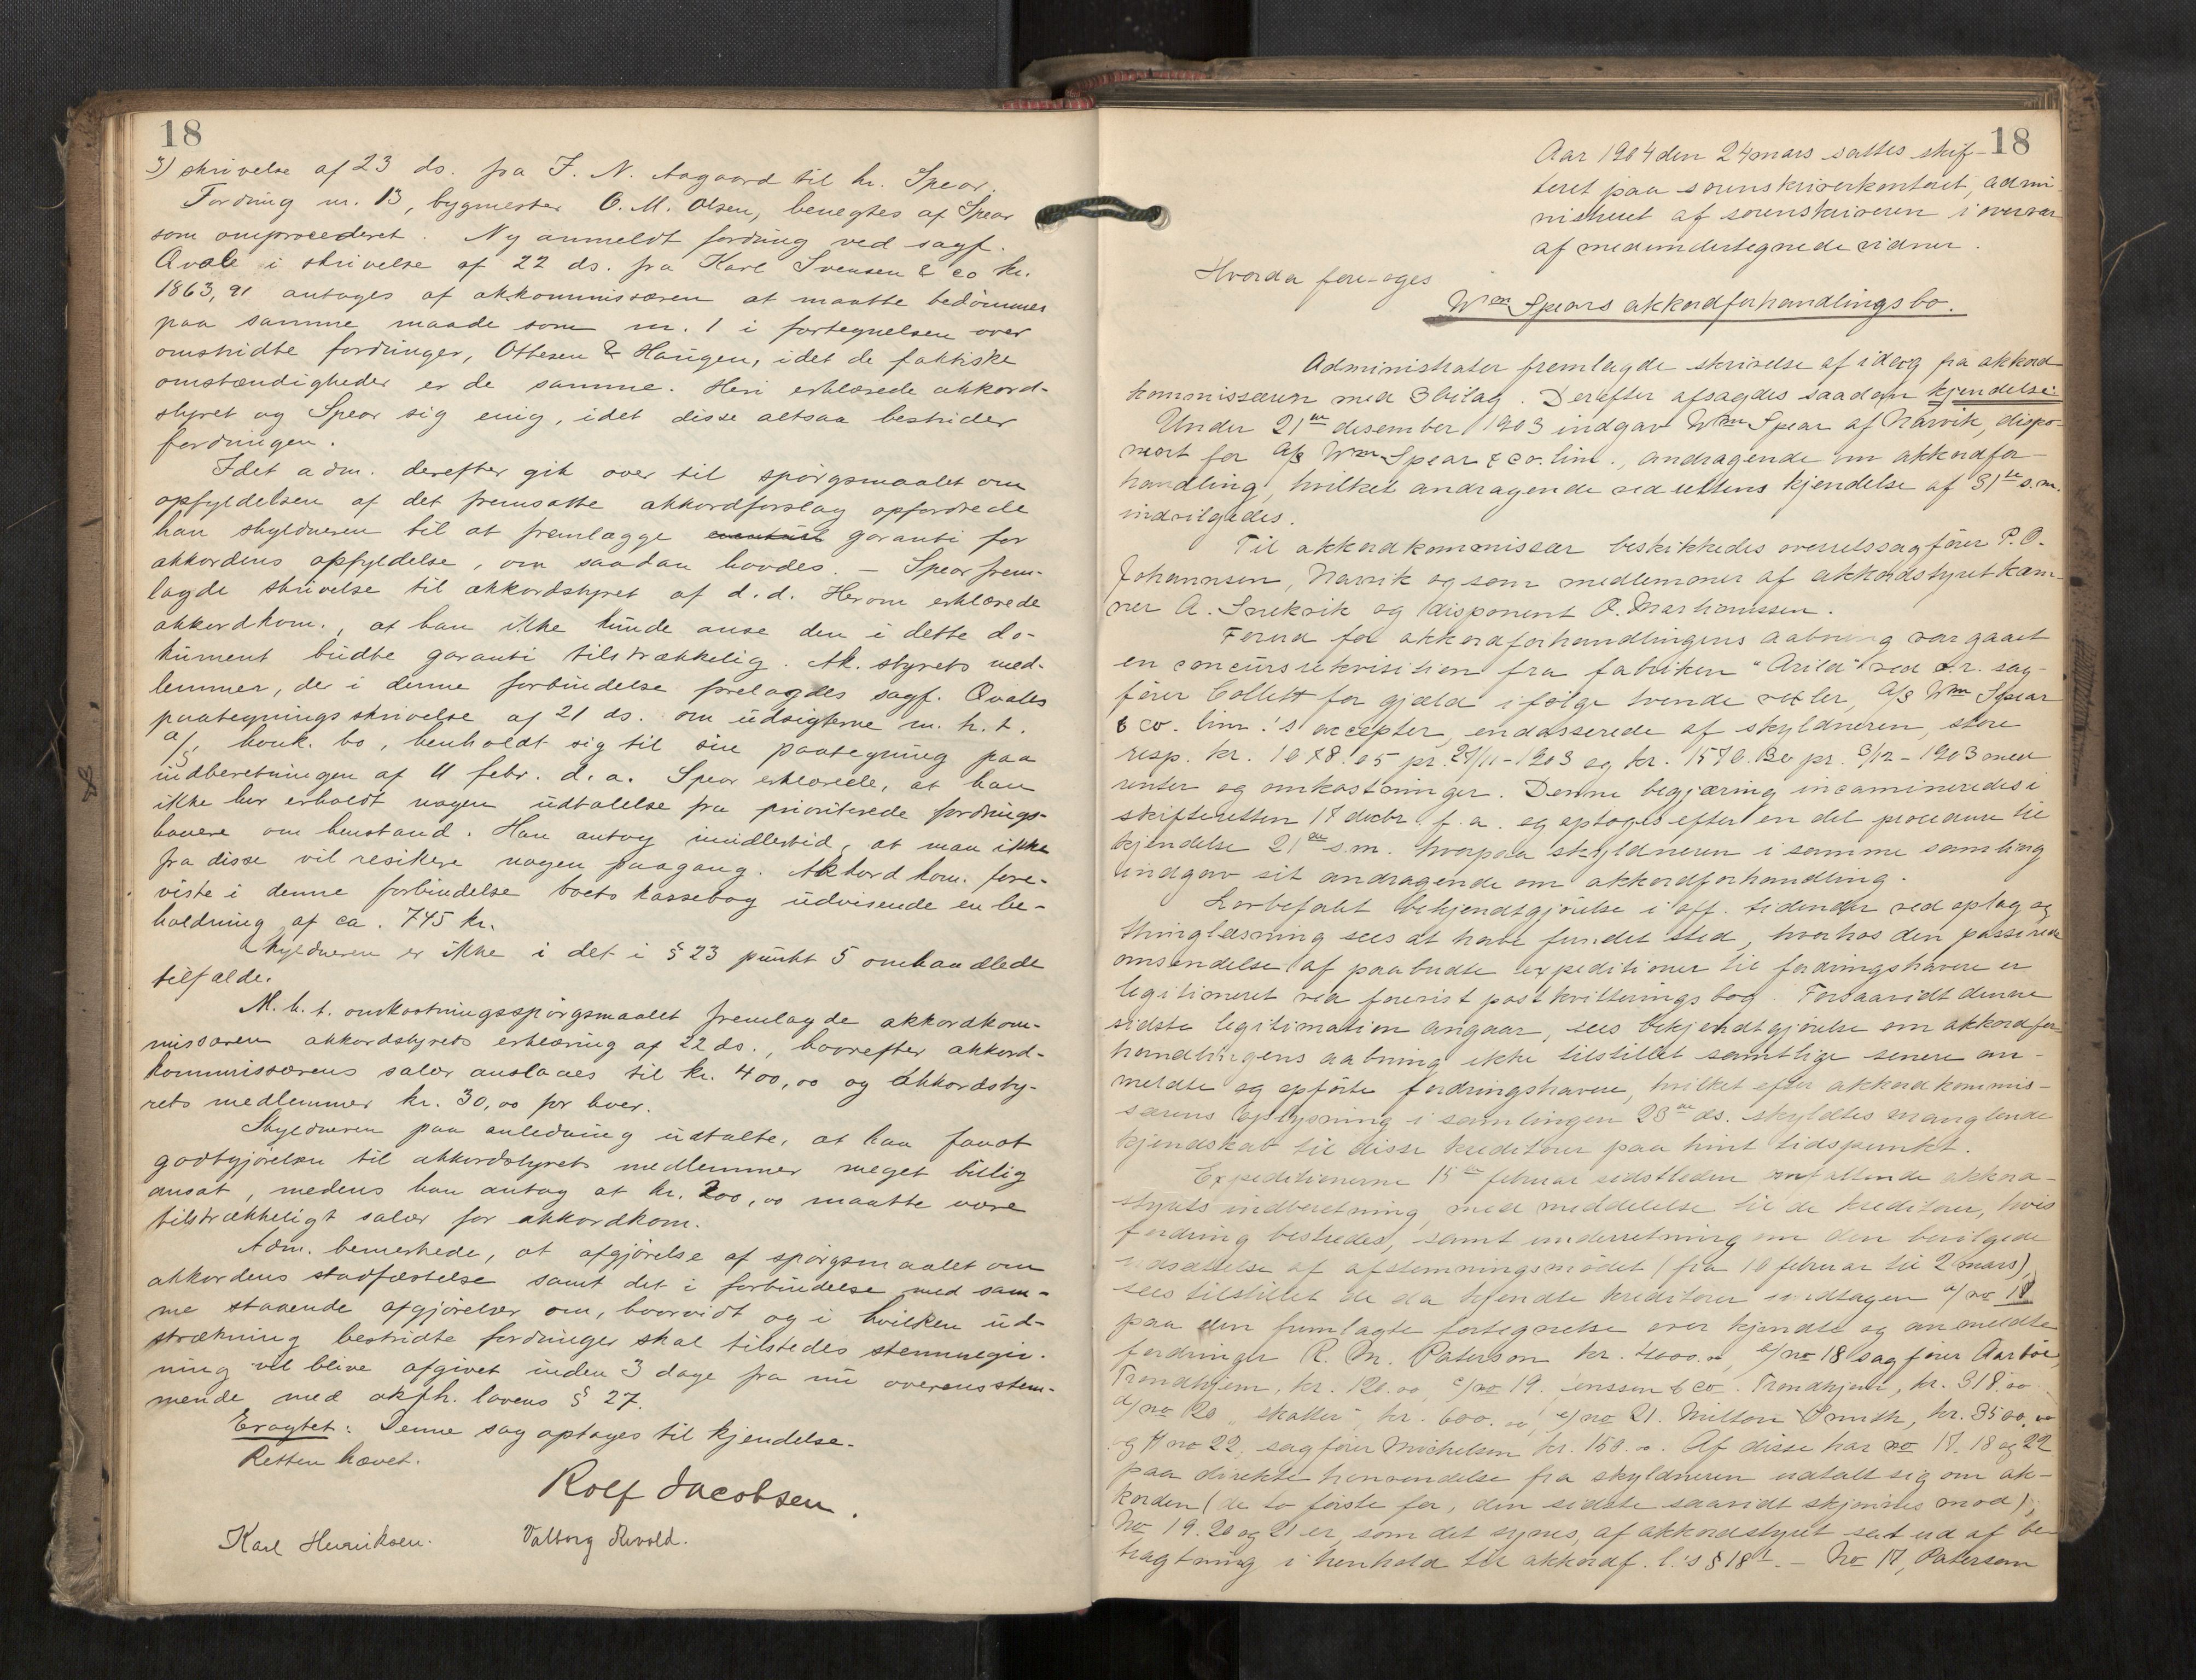 18
3) skrivelse af 23 ds. fra J. N. Aagaard til hr. Spear.
Fordring nr. 13, bygmester O. M. Olsen, benegtes af Spear
som omprocederet. Ny anmeldt fordring ved sagf.
Qvale i skrivelse af 22 ds. fra Karl Svensen & co kr.
1863,91 antages af akkommissæren at maatte bedömmes
paa samme maade som nr. 1 i fortegnelsen over
omstridte fordringer, Ottesen & Haugen, idet de faktiske
omstændigheder er de samme. Heri erklærede akkord-
styret og Spear sig enig, idet disse altsaa bestrider
fordringen.
Idet adm. derefter gik over til spörgsmaalet om
opfyldelsen af det fremsatte akkordforslag opfordrede
han skyldneren til at fremlægge eventuel garanti for
akkordens opfyldelse, om saadan havdes. – Spear frem-
lagde skrivelse til akkordstyret af d.d. Herom erklærede
akkordkom., at han ikke kunde anse den i dette do-
kument budte garanti tilstrækkelig. Ak. styrets med-
lemmer, der i denne forbindelse forelagdes sagf. Qvales
paategningsskrivelse af 21 ds. om udsigterne m. h. t.
a/s konk. bo, henholdt sig til sin paategning paa
indberetningen af 11 febr. d. a. Spear erklærede, at han
ikke har erholdt nogen udtalelse fra prioriterede fordrings-
havere om henstand. Han antog imidlertid, at man ikke
fra disse vil resikere nogen paagang. Akkordkom. fore-
viste i denne forbindelse boets kassebog udvisende en be-
holdning af ca. 745 kr.
Skyldneren er ikke i det i § 23 punkt 5 omhandlede
tilfælde.
M. h. t. omkostningsspörgsmaalet fremlagde akkordkom-
missæren akkordstyrets erklæring af 22 ds., hvorefter akkord-
kommissærens salær ansloaes til kr. 400,00 og akkordsty-
rets medlemmer kr. 30,00 for hver.
Skyldneren paa anledning udtalte, at han fandt
godtgjörelsen til akkordstyrets medlemmer meget billig
ansat, medens han antog at kr. 200,00 maatte være
tilstrækkeligt salær for akkordkom.
Adm. bemerkede, at afgjörelse af spörgsmaalet om
akkordens stadfæstelse samt det i forbindelse med sam-
me staaende afgjörelser om, hvorvidt og i hvilken ud-
strækning bestridte fordringer skal tilstedes stemmegiv-
ning vil blive afgivet inden 3 dage fra nu overensstem-
mende med akfh. lovens § 27.
Eragtet: Denne sag optages til kjendelse.
Retten hævet.
Rolf Jacobsen.
Karl Henriksen. Valborg Revold.
18
Aar 1904 den 24 mars sattes skif-
teret paa sorenskriverkontoret, admi-
nistreret af sorenskriveren i overvær
af medundertegnede vidner.
Hvorda fore-oges
Wm Spears akkordforhandlingsbo.
Administrator fremlagde skrivelse af idag fra akkord
kommissæren med 3 bilag. Derefter afsagdes saadan kjendelse:
Under 21de desember 1903 indgav Wm Spear af Narvik, dispo-
nent for A/S Wm Spear & co. lim., andragende om akkordfor-
handling, hvilket andragende ved rettens kjendelse af 31te s.m.
indvilgedes.
Til akkordkommissær beskikkedes overretssagförer P. O.
Johannsen, Narvik og som medlemmer af akkordstyret kæm-
ner A. Snekvik og disponent O. Marhaussen.
Forud for akkordforhandlingens aabning var gaaet
en concursrekvisition fra fabriken "Arild" ved o.r. sag-
förer Collett for gjæld ifölge tvende vexler, A/S Wm Spear
& co. lim.'s accepter, endosserede af skyldneren, store
resp. kr. 1078.05 pr. 27/11-1903 og kr. 1570.30 pr. 3/12-1903 med
renter og omkostninger. Denne begjæring incamineredes i
skifteretten 17 decbr. f. a. og optoges efter en del procedure til
kjendelse 21de s.m. hvorpaa skyldneren i samme samling
indgav sit andragende om akkordforhandling.
Lovbefalt bekjendtgjörelse i off. tidender ved oplag og
thinglæsning sees at have fundet sted, hvorhos den passerede
omsendelse af paabudte expeditioner til fordringshavere er
legitimeret ved forevist postkvitteringsbog. Forsaavidt denne
sidste legitimation angaar, sees bekjendtgjörelse om akkordfor
handlingens aabning ikke tilstillet samtlige senere an-
meldte og opförte fordringshavere, hvilket efter akkordkommis-
særens oplysning i samlingen 23de ds. skyldtes manglende
kjendskab til disse kreditorer paa hint tidspunkt.
Expeditionerne 15de februar sidstleden omfattende akkord-
styrets indberetning, med meddelelse til de kreditorer, hvis
fordring bestredes, samt underretning om den bevilgede
udsættelse af afstemningsmödet (fra 10 februar til 2 mars),
sees tilstillet de da kjendte kreditorer undtagen a/ no 17
paa den fremlagte fortegnelse over kjendte og anmeldte
fordringer R. M. Paterson kr. 4000.00, b/ no 18 sagförer Aarböe,
Trondhjem, kr. 120.00, c/ no 19. Jensson & co. Trondhjem, kr. 318.00
d/ no 20 "skatter", kr. 600.00, e/ no 21. Milton Smith, kr. 3500.00
og f/ no 22, sagförer Michelsen kr. 150.00. Af disse har no 17. 18 og 22
paa direkte henvendelse fra skyldneren udtalt sig om ak-
korden (de to förste for, den sidste saavidt skjönnes mod);
No 19. 20 og 21 er, som det synes, af akkordstyret sat ud af be
tragtning i henhold til akkordf. l.'s § 18 1. – No 17, Paterson